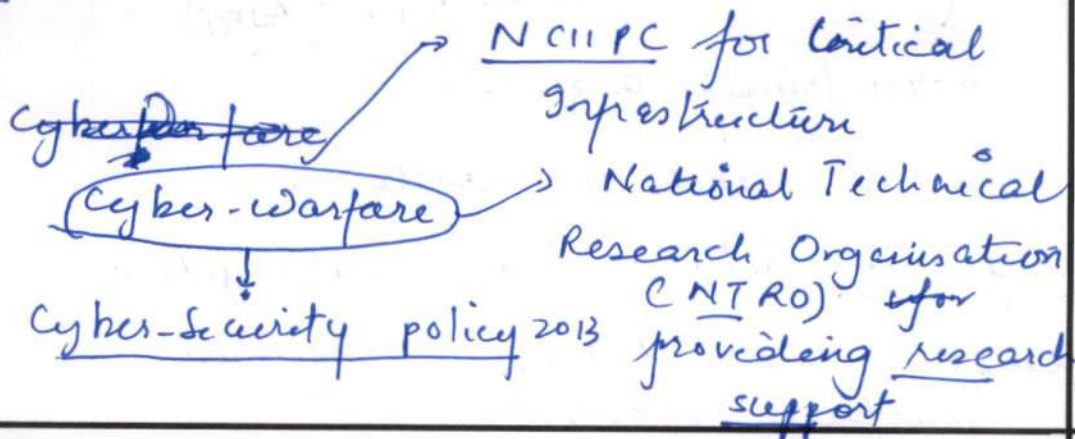 NCIIPC for Critical
Infrastructure
Cyber-Warfare
National Technical
Research Organisation
(NTRO) for
providing research
support
Cyber-Security policy 2013